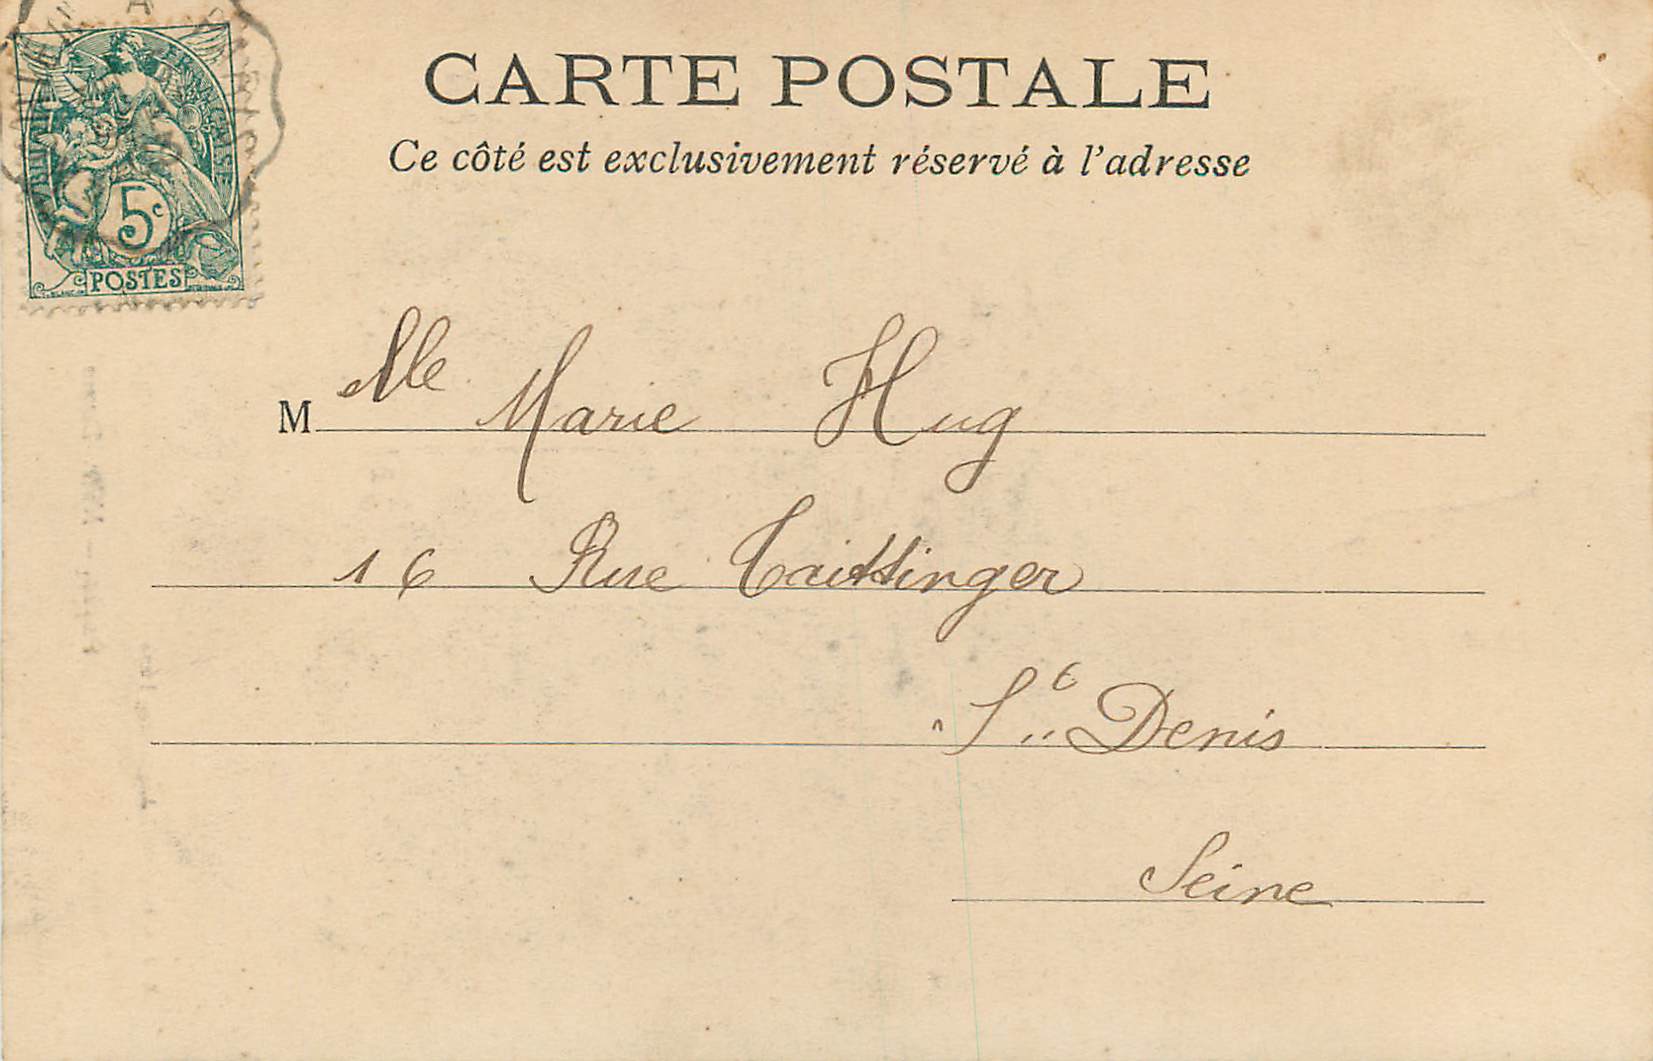 CARTE POSTALE
Ce côté est exclusivement réservé à l'adresse
5c
POSTES
M Mlle Marie Hug
16 Rue Taittinger
St Denis
Seine